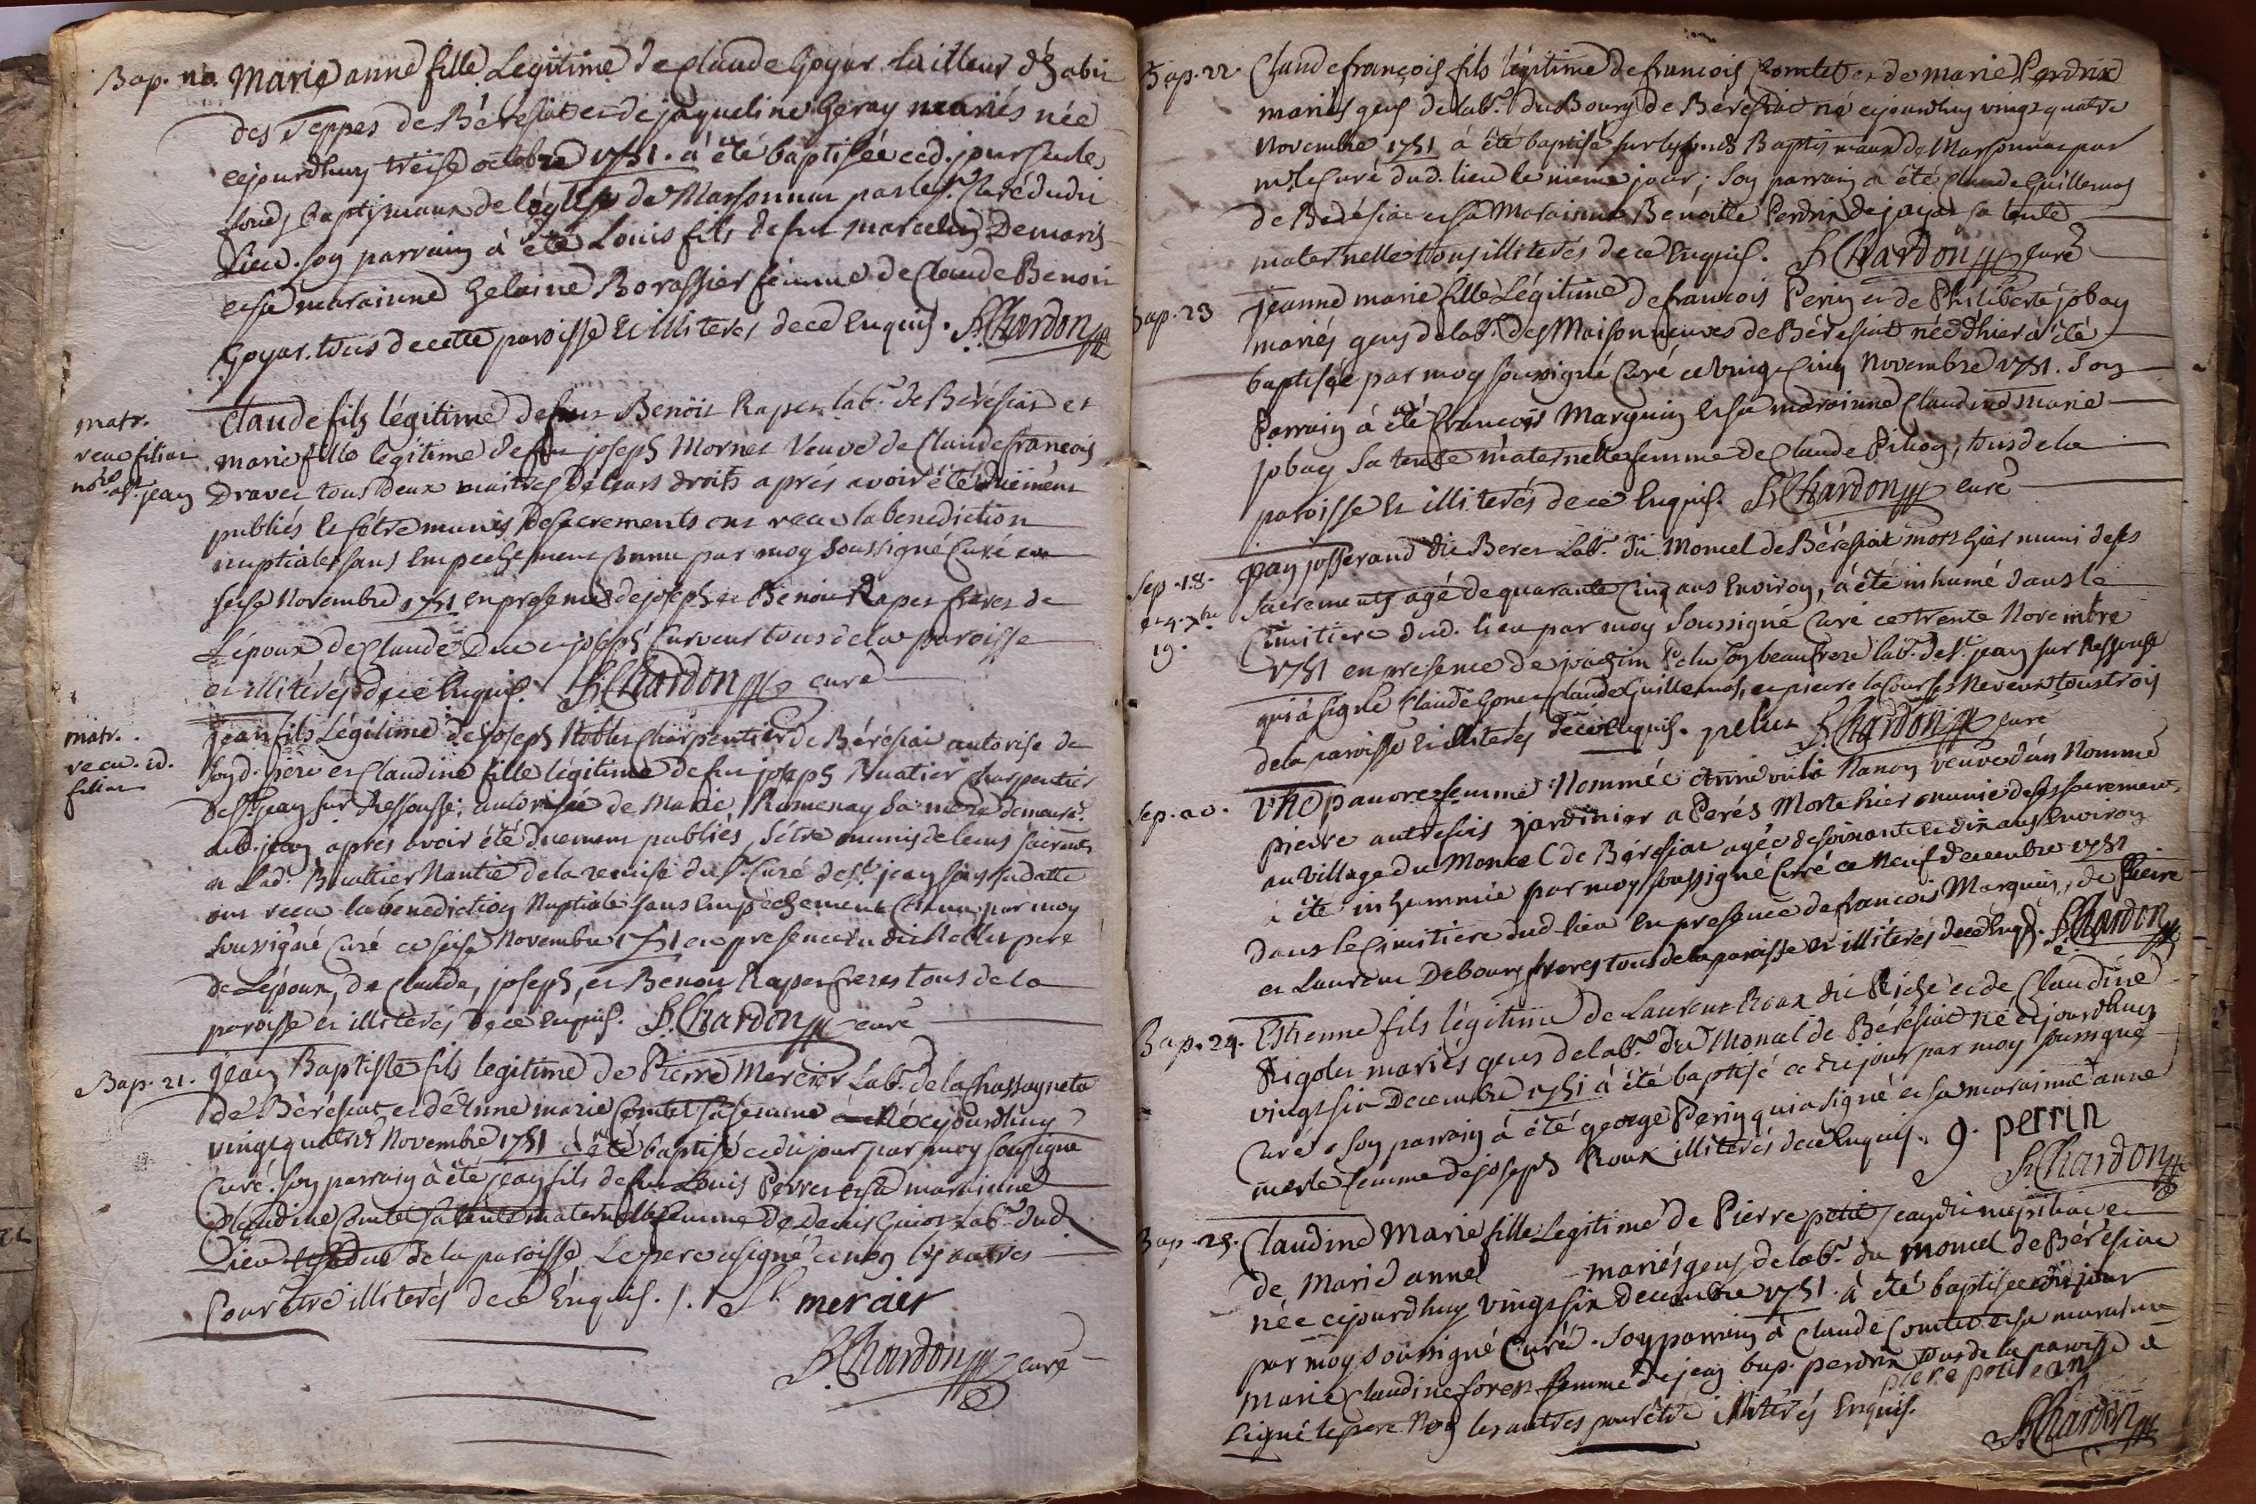 Bap. 20. Marie anne fille Légitime de Claude Goyar tailleur d'habit
des Teppes de Béresiat et de jaqueline Geray mariés née
cejourdhuy treise octobre 1751. à été baptisée ced. jour sur les
fonds baptismaux de l'église de Marsonnas par le Sr. Curé dudi
Lieu. son parrain à été Louis fils de feu marcelin Demaris
et sa marainne helaine Borassier femme de Claude Benoit
Goyar. tous de cette paroisse et illiterés de ce Enquis. B. Chardon
matr.
recu filiat
Claude fils légitime de feu Benoit Raper lab.r de Béresiat et
marie fille légitime de feu joseph Mornet Veuve de Claude françois
Dravet tous deux maitres de leurs droits aprés avoir été duëment
publiés et s'étre munis de sacrements ont recu la benediction
nuptiale sans Empechement connu par moy soussigné Curé ce
seise Novembre 1751 en presence de joseph et Benoit Raper freres de
L'époux de Claude Duc et joseph Curveur tous de la paroisse
et illiterés de ce Enquis. B. Chardon curé
matr.
recu. id.
filiat
jean fils Légitime de joseph Noblet Charpentier de Béresiat autorise de
sond. pere et Claudine fille légitime de feu joseph Buatier charpentier
de St. jean sur Ressousse; autorisée de Marie Romenay sa mere demeurt.
aud. jean aprés avoir été duement publiés, s'étre munis de leurs sacremts
et Lad. Buattier Nantie de la remise du Sr. Curé de St. jean sans sa datte
ont recu la benediction Nuptiale sans Empêchement Connu par moy
soussigné Curé ce seise Novembre 1751 en presence dudit Noblet pere
de L'époux, de Claude, joseph, et Benoit Raper freres tous de la
paroisse et illiterés de ce Enquis. B. Chardon curé
Bap. 21. jean Baptiste fils legitime de Pierre Mercier Lab.r de la Chassagneta
de Béresiat et de Anne marie Comtet sa femme Né cejourdhuy
vingt quatre Novembre 1751 à été baptisé cedit jour par moy soussigné
Curé. son parrain à été jean fils de feu Louis Perret et sa marainne
Claudine Comtet sa tante maternelle femme de Denis Guiot Lab.r dud.
Lieu de la paroisse, Le pere a signé et non les autres
Pour être illiterés de ce Enquis. P. mercier
B. Chardon curé
Bap. 22. Claude françois fils légitime de francois Comtet et de marie Perdrix
mariés gens de lab.r du Bourg de Béresiat né cejourdhuy vingt quatre
Novembre 1751 à été baptisé sur les fonds Baptismaux de Marsonnas par
mr. le Curé dud. lieu le meme jour; son parrain a été Claude Guillermos
de Beresiat et sa Marainne Benoitte Perdrix de jayat sa tante
maternelle tous illiterés de ce Enquis. B. Chardon curé
Bap. 23 jeanne marie fille Légitime de francois Perin et de Philiberte jobay
mariés gens de lab.r des Maisonneuves de Béresiat née d'hier à été
baptisée par moy soussigné Curé ce vingt Cinq Novembre 1751. Son
Parrain à été francois Marguin et sa marainne Claudine marie
jobay sa tante maternelle femme de Claude Pithoy, tous de la
paroisse et illiterés de ce Enquis. B. Chardon curé
Sep. 18. jean josserand dit Beret Lab.r du Moncel de Béresiat mort hier muni de ses
sacrements agé de quarante Cinq ans Environ, à été inhumé dans le
19. Cimitiere dud. lieu par moy Soussigné Curé ce trente Novembre
1751 en presence de joachim Pelu son beaufrere lab.r de St. jean sur Ressouse
qui à signé Claude Gonet Claude Guillermos, et pierre la Course Neveux tous trois
de la paroisse et illiterés de ce Enquis. pelux B. Chardon curé
Sep. 20. Une pauvre femme Nommée Anne Nanon veuve d'un Nommé
pierre autrefois jardinier a Perés Morte hier munie de ses sacrements
au village du Moncel de Béresiat agée de soixante et dix ans Environ
à été inhumée par moy soussigné Curé ce Neuf decembre 1751
dans le Cimitiere dud. lieu En presence de francois Marguin, de Pierre
et Laurent Debourg freres tous de la paroisse et illiterés de ce Enq. B. Chardon
Bap. 24. Estienne fils légitime de Laurent Roux dit Riche et de Claudine
Rigolet mariés gens de lab.r du Moncel de Béresiat né cejourdhuy
vingt six Decembre 1751 à été baptisé cedit jour par moy soussigné
Curé son parrain à été george Perin qui a signé et sa marainne anne
merle femme de joseph Roux illiterés de ce Enquis. g. perrin
B. Chardon
Bap. 25. Claudine Marie fille Legitime de Pierre petit jean et
de Marie anne mariés gens de lab.r du moncel de Béresiat
née cejourdhuy vingt six decembre 1751. à été baptisée cedit jour
par moy soussigné Curé. son parrain à Claude Comtet et sa marainne
marie Claudine foret femme de jean bap. perdrix tous de la paroisse à
signé le pere Non les autres pour être illiterés Enquis. piere petit jean
B. Chardon